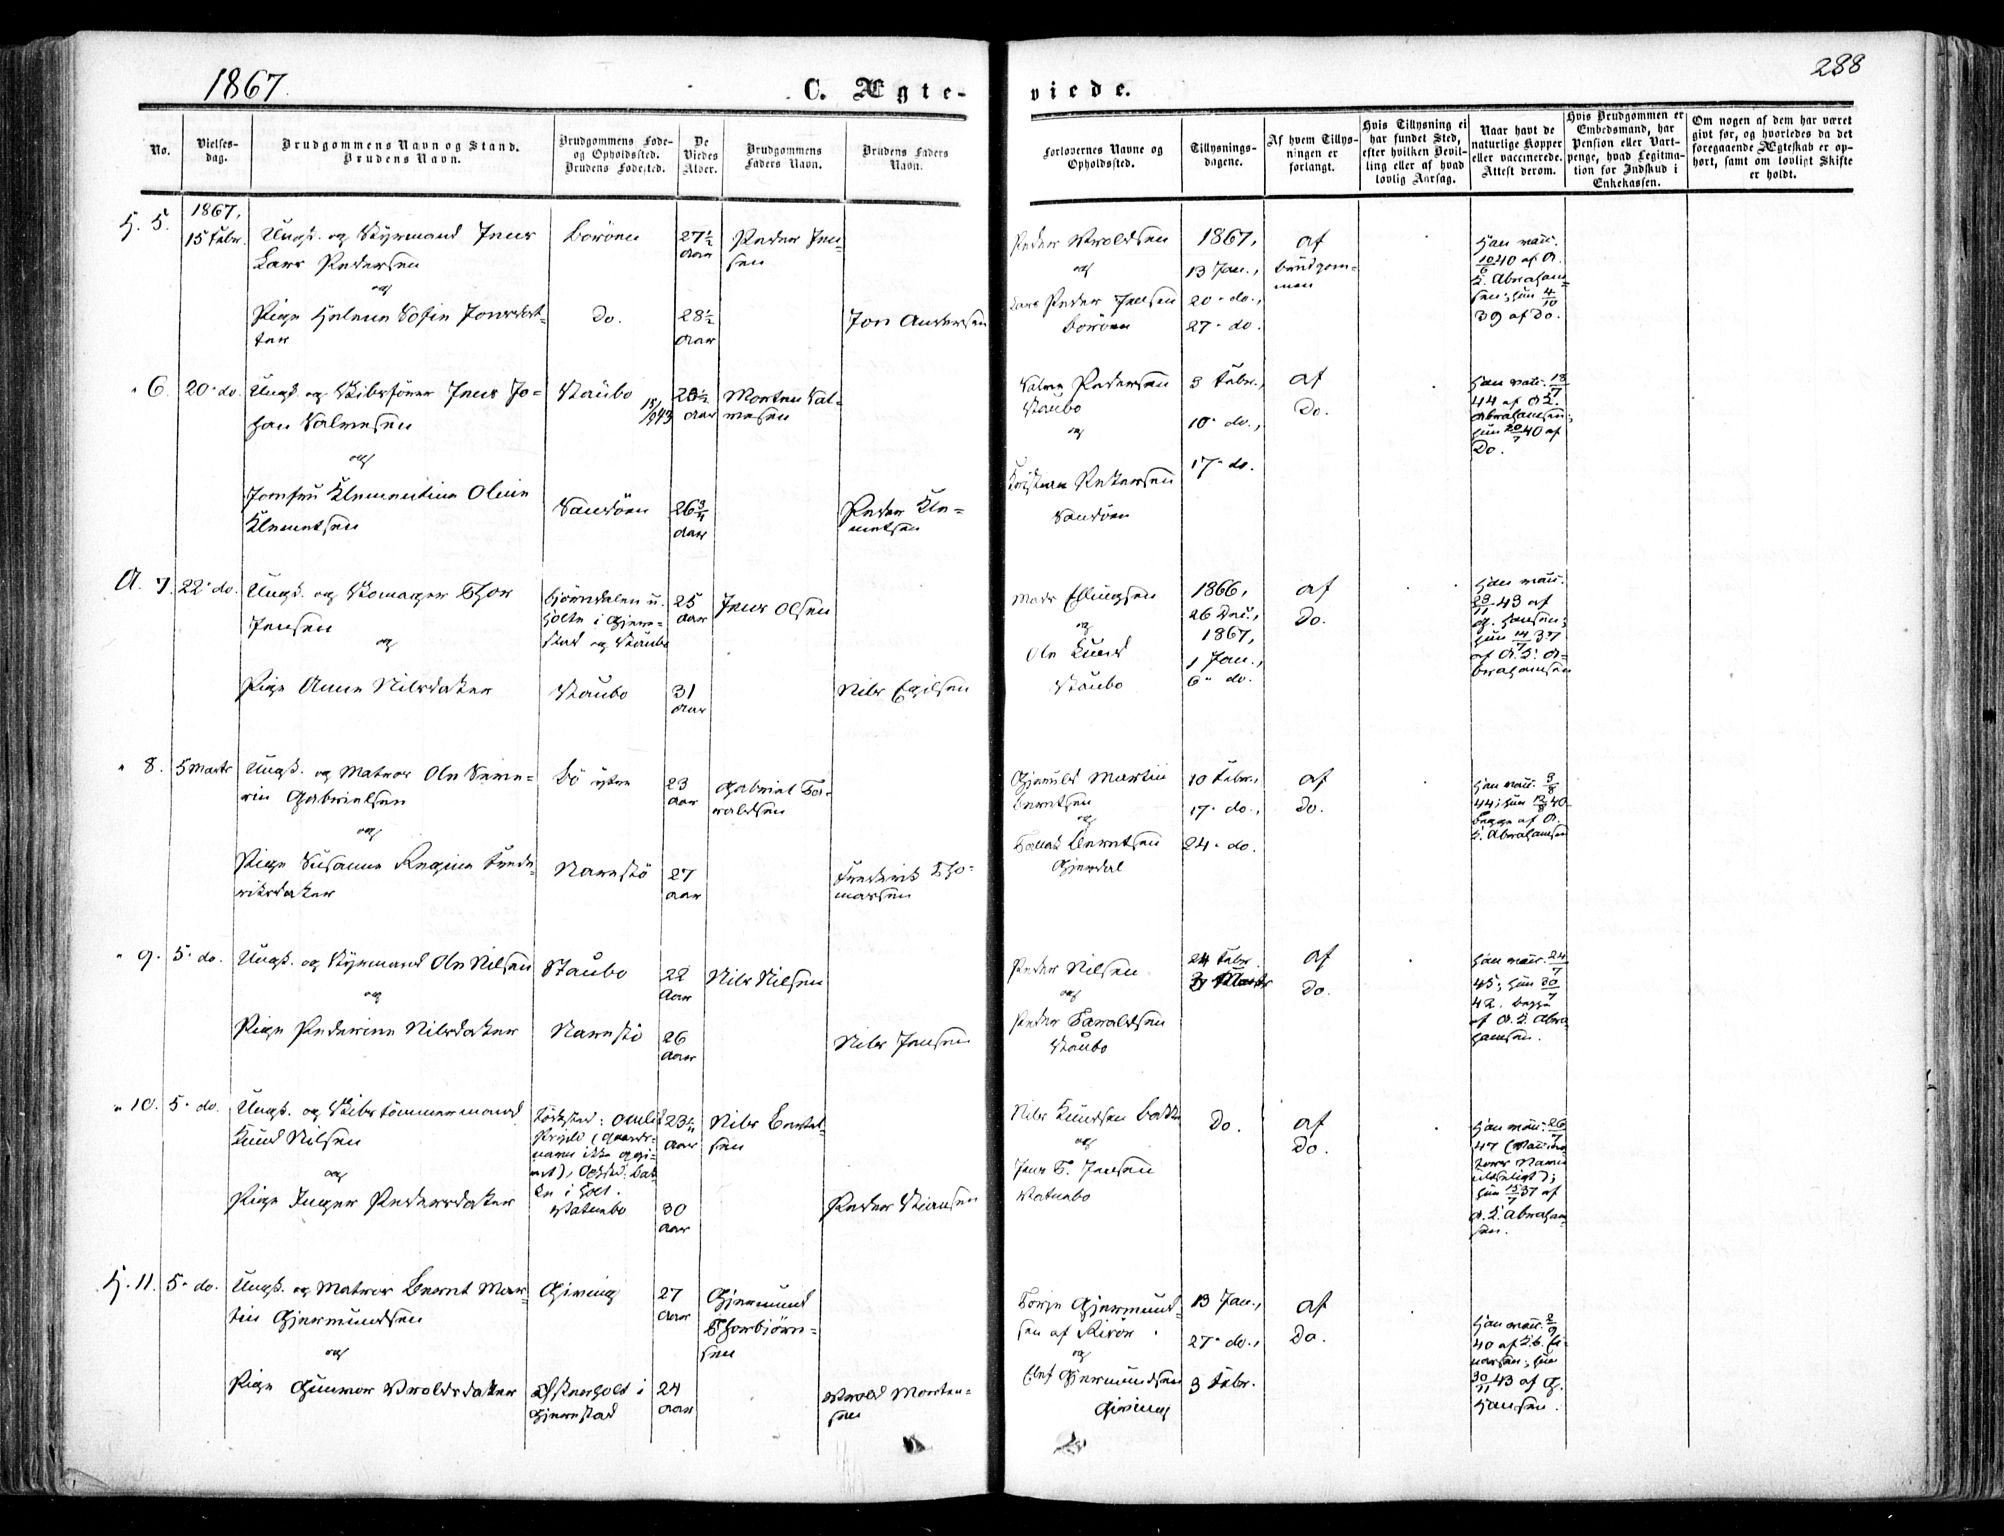 1867.
C. Ægte-
viede.
288
No.
Vielses-
dag.
Brudgommens Navn og Stand.
Brudens Navn.
Brudgommens Føde-
og Opholdssted.
Brudens Fødested.
De
Viedes
Alder.
Brudgommens
Faders Navn.
Brudens Faders
Navn.
Forlovernes Navne og
Opholdssted.
Tillysnings-
dagene.
Af hvem Tillys-
ningen er
forlangt.
Hvis Tillysning ei
har fundet Sted,
efter hvilken Bevil-
ling eller af hvad
lovlig Aarsag.
Naar havt de
naturlige Kopper
eller vaccinerede.
Attest derom.
Hvis Brudgommen er
Embedsmand, har
Pension eller Vart-
penge, hvad Legitma-
tion for Indskud i
Enkekassen.
Om nogen af dem har været
givt før, og hvorledes da det
foregaaende Ægteskab er op-
hørt, samt om lovligt Skifte
er holdt.
H. 5.
1867,
15 Febr.
Ungk. og Styrmand Jens
Lars Pedersen
og
Pige Helene Sofie Jonsdat-
ter
Borøen
Do.
27½
Aar
28½
Aar
Peder Jen-
sen
Jon Andersen
Peder Wroldsen
og
Lars Peder Jensen
Borøen
1867,
13 Jan.,
20 - do.,
27 - do.
af
Brudgom-
men
Han vacc.
10/6 40 af A.
L. Abraham-
sen; hun 4/10
39 af Do.
" 6.
20 - do.
Ungk. og Skibsfører Jens Jo-
han Salvesen
og
Jomfru Klementine Oline
Klemetsen
Staubo
Sandøen
Aar
26¾
Aar
Morten Sal-
vesen
Peder Kle-
metsen
Salve Pedersen
Staubo
og
Kristian Pedersen
Sandøen
3 Febr.,
10 - do.,
17 - do.
af
Do.
Han vacc. 18/7
44 af A. L.
Abrahamsen;
hun 20/7 40 af
Do.
A. 7.
22 - do.
Ungk. og Skomager Thor
Jensen
og
Pige Anne Nilsdatter
Bjørndalen u.
Holte i Gjere-
stad og Staubo
Staubo
25
Aar
31
Aar
Jens Olsen
Nils Egilsen
Mads Ellingsen
og
Ole Lund
Staubo
1866,
26 Dec.,
1867,
1 Jan.,
6 - do.
af
Do.
Han vacc.
23/11 43 af
G. Hansen;
hun 14/7 37
af A. L. A-
brahamsen
" 8.
5 Marts
Ungk. og Matros Ole Seve-
rin Gabrielsen
og
Pige Susanne Regine Frede-
riksdatter
Bø ytre
Narestø
23
Aar
27
Aar
Gabriel Ta-
raldsen
Frederik Tho-
massen
Gjeruld Martin
Berntsen
og
Tallak Berntsen
Gjerdal
10 Febr.,
17 - do.,
24 - do.
af
Do.
Han vacc. 3/8
44; hun 12/8 40
begge af A.
L. Abrahamsen
" 9.
5 - do.
Ungk. og Styrmand Ole Nilsen
og
Pige Pederine Nilsdatter
Staubo
Narestø
22
Aar
26
Aar
Nils Nilsen
Nils Jensen
Peder Nilsen
og
Peder Taraldsen
Staubo
24 Febr.
3 Marts
af
Do.
Han vacc. 24/7
45; hun 20/7
42. begge
af A. L. Abra-
hamsen.
" 10.
5 - do.
Ungk. og Skibstømmermand
Knud Nilsen
og
Pige Inger Pedersdatter
Fødested: Omlid
Præstegj. (Gaards-
navn ikke opgi-
vet), Opholdst. Bak-
ke i Holt.
Vatnebo
Aar
30
Aar
Nils Bertel-
sen
Peder Stiansen
Nils Knudsen Bakke
og
Jens T. Jensen
Vatnebo
Do.
af
Do.
Han vacc. 26/7
47 (Vaccina-
tors Navn
utydeligt);
hun 15/7 37 af
A. L. Abraham-
sen.
H. 11.
5 - do.
Ungk. og Matros Bernt Mar-
tin Gjermundsen
og
Pige Gunvor Wroldsdatter
Giving
Østerholt i
Gjerestad
27
Aar
24
Aar
Gjermund
Thorbjørn-
sen
Wrold Morten-
sen
Terje Gjermund-
sen af Risør
og
Elef Gjermundsen
Giving
13 Jan.,
27 - do.,
3 Febr.
af
Do.
Han vacc. 2/9
40 af T. B. Ei-
narsen; hun
30/11 43 af G.
Hansen.